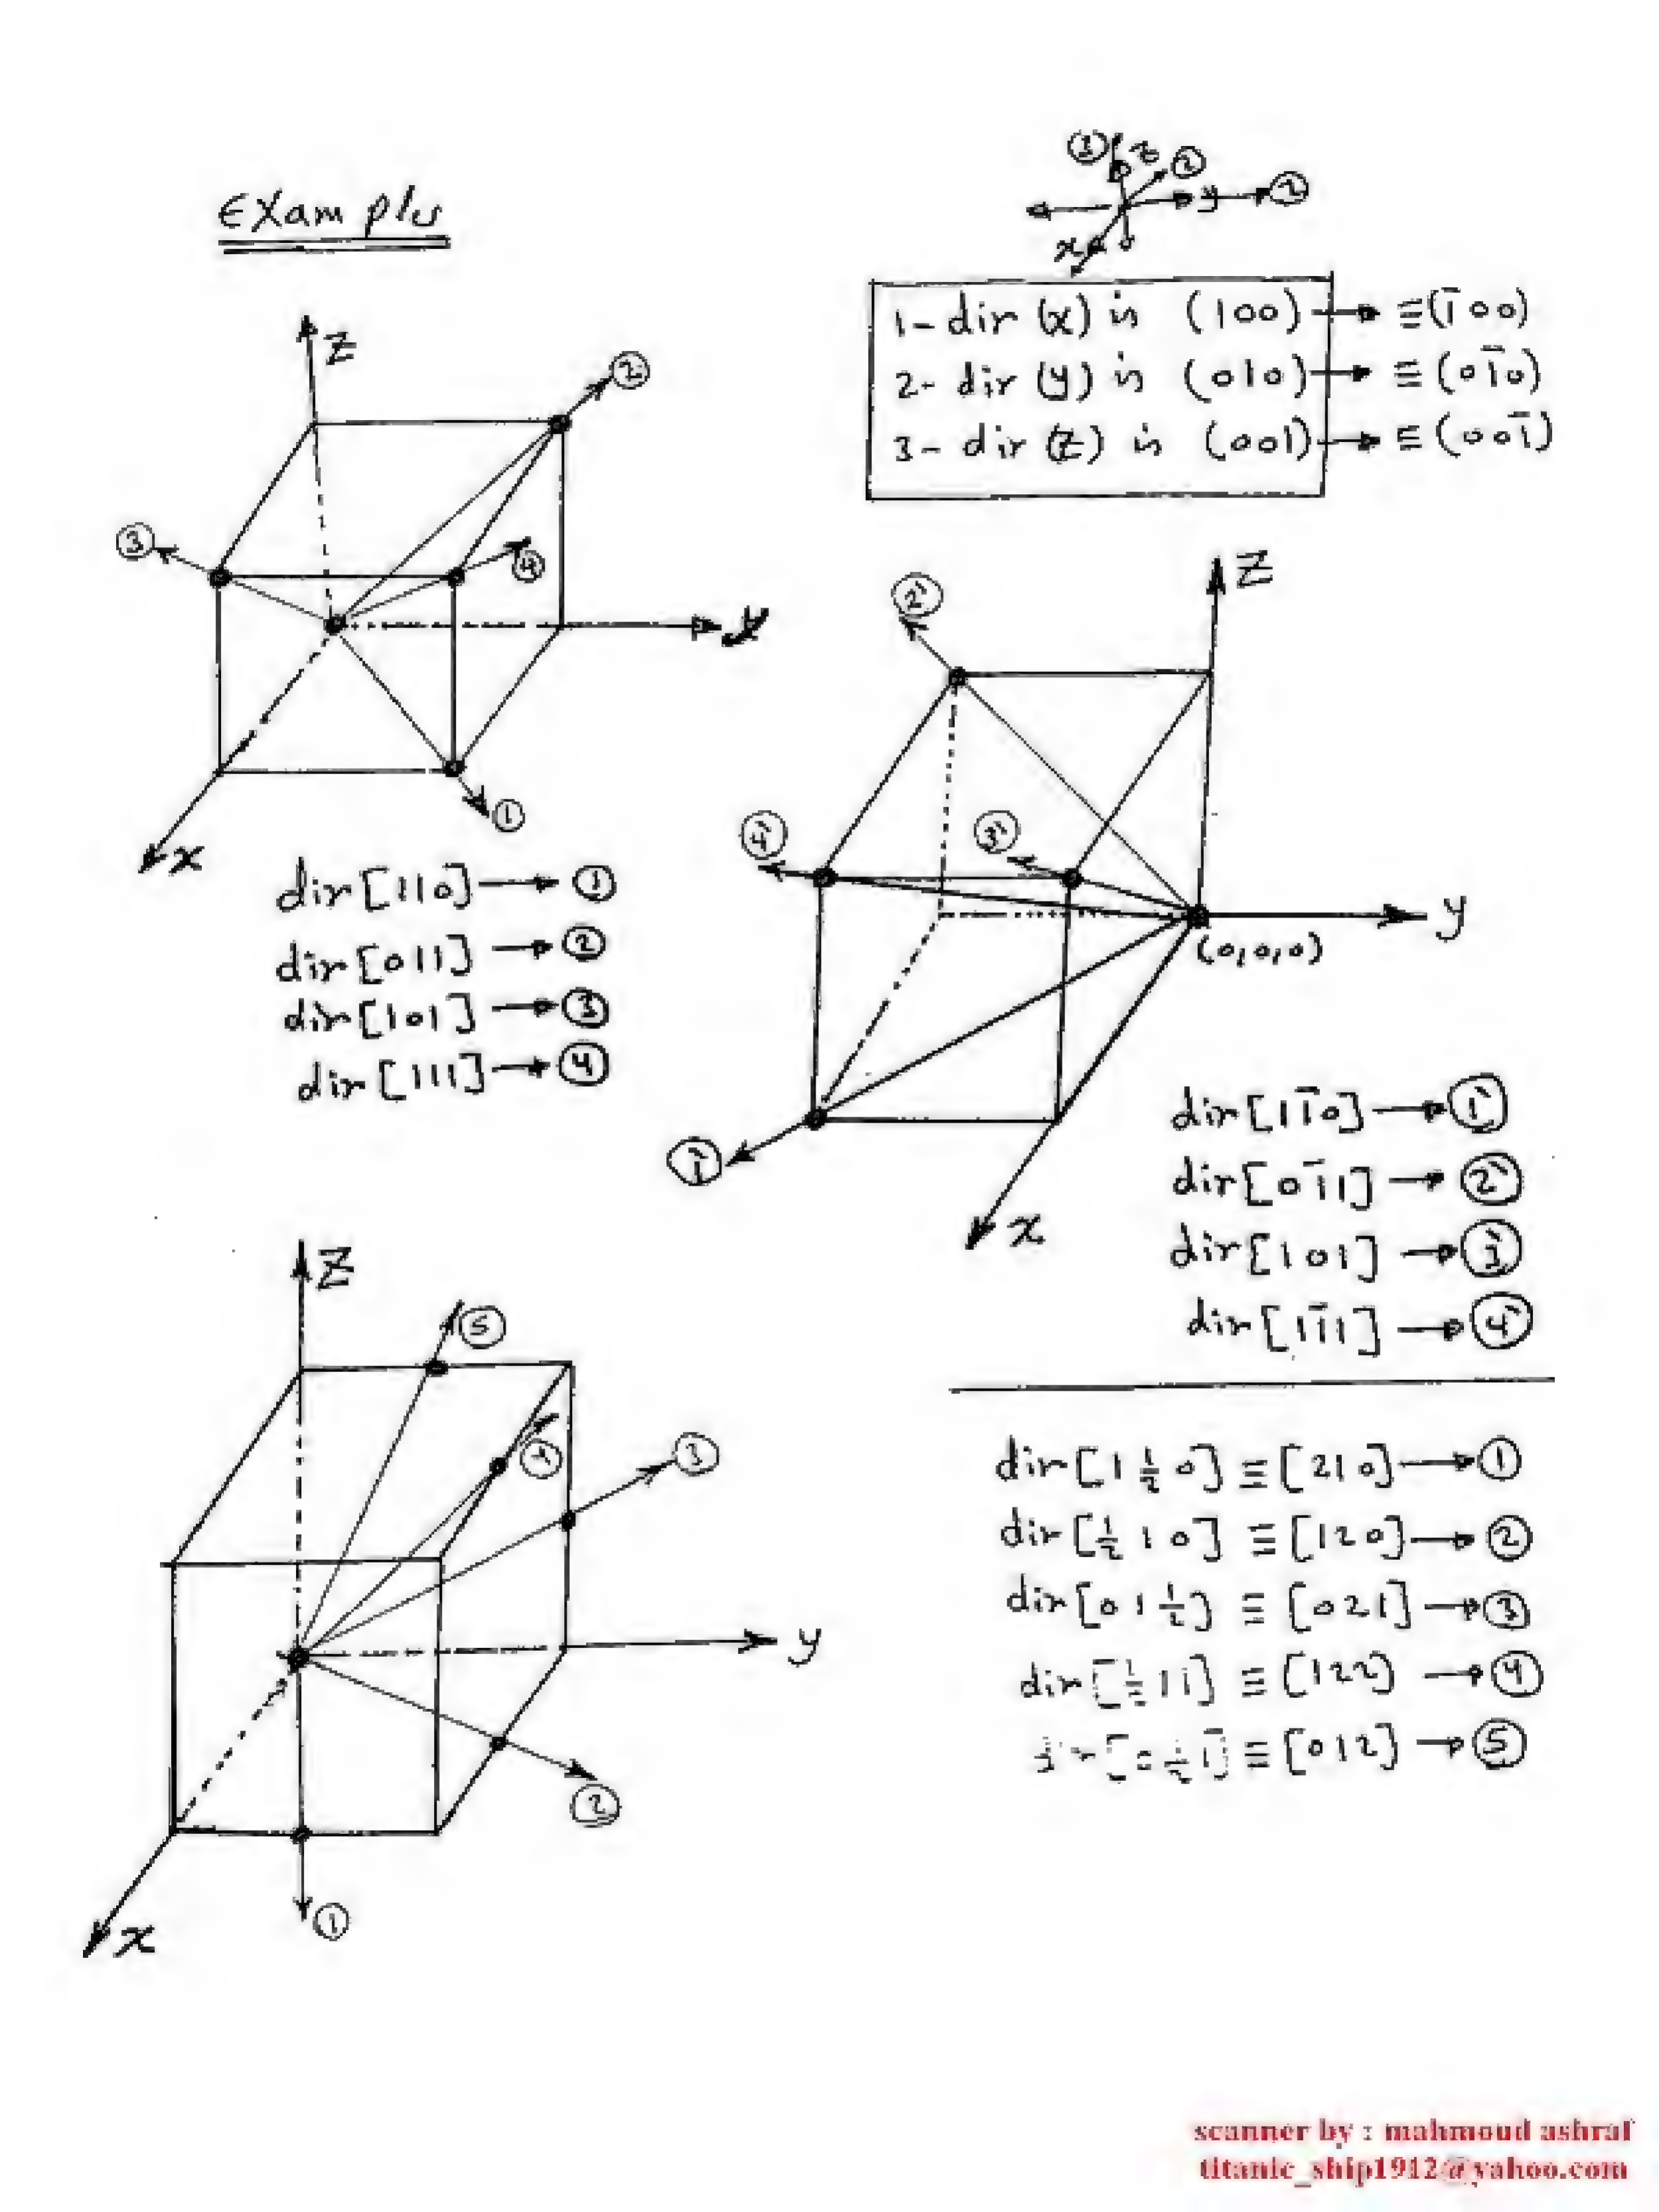 Examples
③ z ②
y ②
x
1- dir (x) is (100) → ≡ (1̄00)
2- dir (y) is (010) → ≡ (01̄0)
3- dir (z) is (001) → ≡ (001̄)
z
②
③
④
y
①
x
dir [110] → ①
dir [011] → ②
dir [101] → ③
dir [111] → ④
z
2'
4'
3'
y
(0,0,0)
1'
x
dir [11̄0] → 1'
dir [01̄1] → 2'
dir [101] → 3'
dir [11̄1] → 4'
z
⑤
④
③
y
②
①
x
dir [1 ½ 0] ≡ [210] → ①
dir [½ 1 0] ≡ [120] → ②
dir [0 1 ½] ≡ [021] → ③
dir [½ 1 1] ≡ [122] → ④
dir [0 ½ 1] ≡ [012] → ⑤
scanner by : mahmoud ashraf
titanic_ship1912@yahoo.com